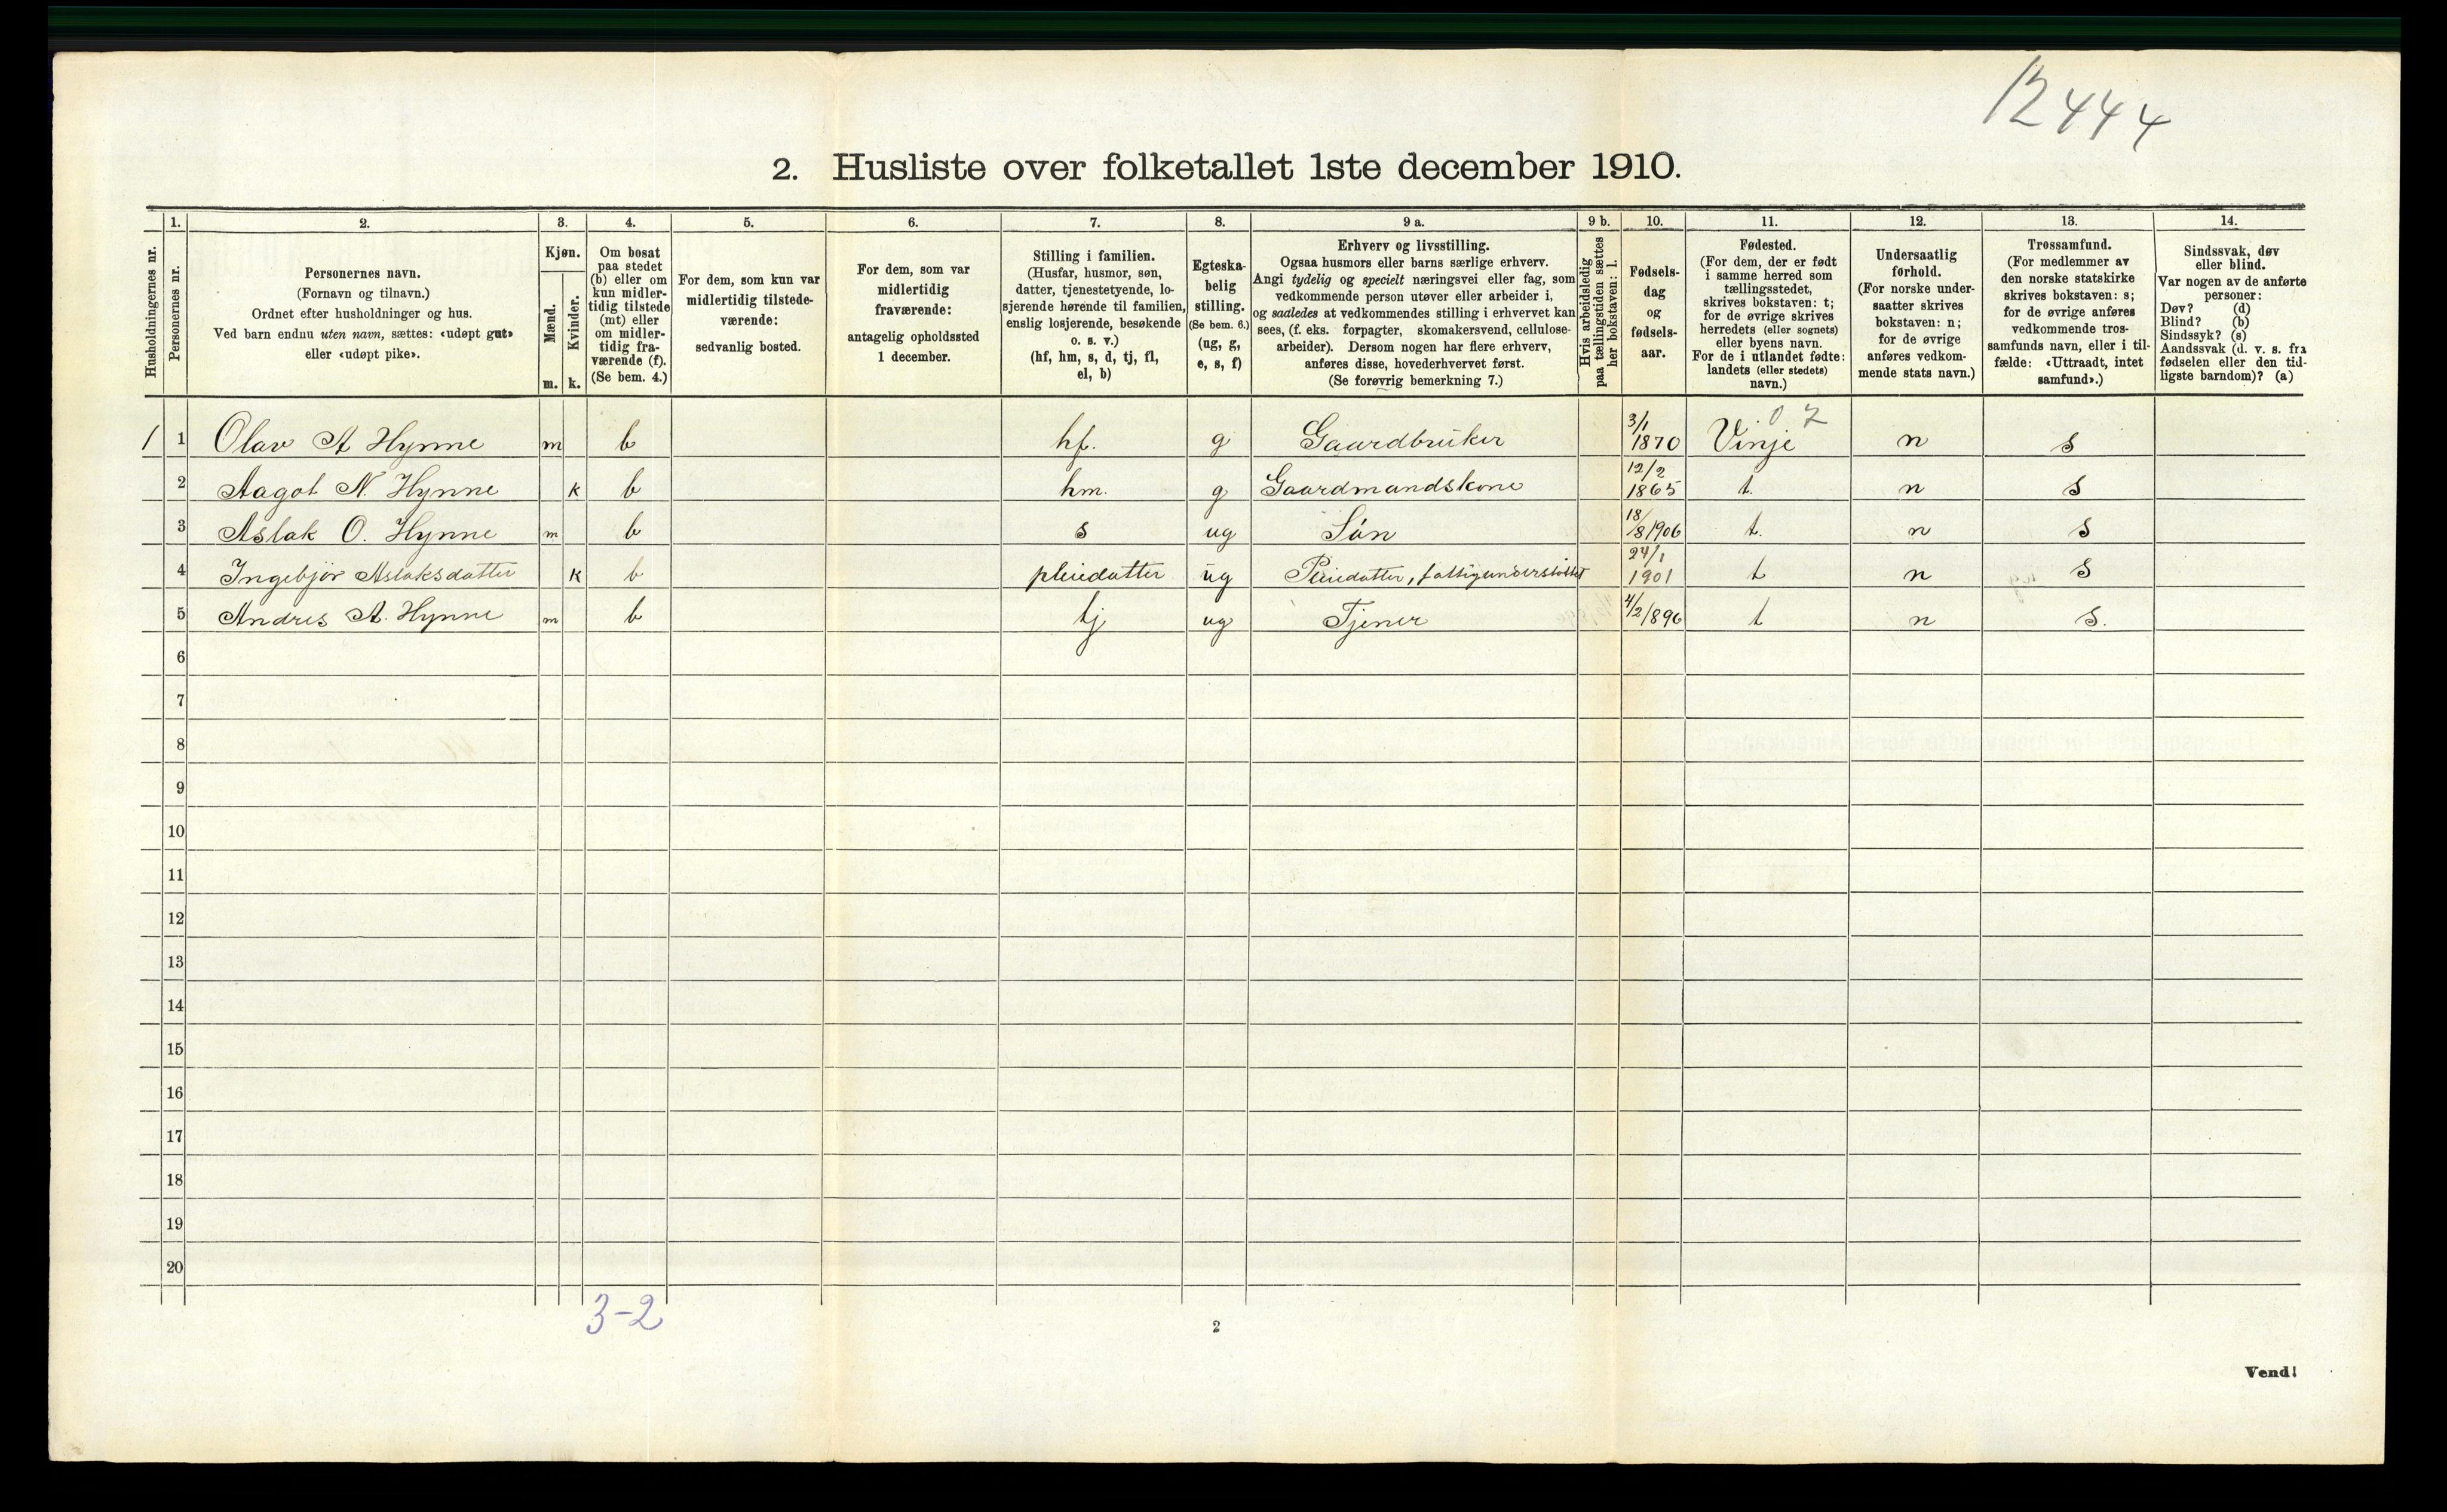 12444
2. Husliste over folketallet 1ste december 1910.
Husholdningernes nr.
1. Personernes nr.
2. Personernes navn.
(Fornavn og tilnavn.)
Ordnet efter husholdninger og hus.
Ved barn endnu uten navn, sættes: «udøpt gut»
eller «udøpt pike».
3. Kjøn.
Mænd. m.
Kvinder. k.
4. Om bosat
paa stedet
(b) eller om
kun midler-
tidig tilstede
(mt) eller
om midler-
tidig fra-
værende (f).
(Se bem. 4.)
5. For dem, som kun var
midlertidig tilstede-
værende:
sedvanlig bosted.
6. For dem, som var
midlertidig
fraværende:
antagelig opholdssted
1 december.
7. Stilling i familien.
(Husfar, husmor, søn,
datter, tjenestetyende, lo-
sjerende hørende til familien,
enslig losjerende, besøkende
o. s. v.)
(hf, hm, s, d, tj, fl,
el, b)
8. Egteska-
belig
stilling.
(Se bem. 6.)
(ug, g,
e, s, f)
9 a. Erhverv og livsstilling.
Ogsaa husmors eller barns særlige erhverv.
Angi tydelig og specielt næringsvei eller fag, som
vedkommende person utøver eller arbeider i,
og saaledes at vedkommendes stilling i erhvervet kan
sees, (f. eks. forpagter, skomakersvend, cellulose-
arbeider). Dersom nogen har flere erhverv,
anføres disse, hovederhvervet først.
(Se forøvrig bemerkning 7.)
9 b. Hvis arbeidsledig
paa tællingstiden sættes
her bokstaven: l.
10. Fødsels-
dag
og
fødsels-
aar.
11. Fødested.
(For dem, der er født
i samme herred som
tællingsstedet,
skrives bokstaven: t;
for de øvrige skrives
herredets (eller sognets)
eller byens navn.
For de i utlandet fødte:
landets (eller stedets)
navn.)
12. Undersaatlig
førhold.
(For norske under-
saatter skrives
bokstaven: n;
for de øvrige
anføres vedkom-
mende stats navn.)
13. Trossamfund.
(For medlemmer av
den norske statskirke
skrives bokstaven: s;
for de øvrige anføres
vedkommende tros-
samfunds navn, eller i til-
fælde: «Uttraadt, intet
samfund».)
14. Sindssvak, døv
eller blind.
Var nogen av de anførte
personer:
Døv? (d)
Blind? (b)
Sindssyk? (s)
Aandssvak (d. v. s. fra
fødselen eller den tid-
ligste barndom)? (a)
0 7
1 1 Olav A Hynne m b hf. g Gaardbruker 3/1 1870 Vinje n s
2 Aagot N. Hynne k b hm. g Gaardmandskone 12/2 1865 t. n s
3 Aslak O. Hynne m b s ug Sön 18/8 1906 t. n s
4 Ingebjör Aslaksdatter k b pleiedatter ug Pleiedatter, fattigunderstöttet 24/1 1901 t n s
5 Andres A. Hynne m b tj ug Tjener 4/2 1896 t n s.
6
7
8
9
10
11
12
13
14
15
16
17
18
19
20
3-2
2
Vend!